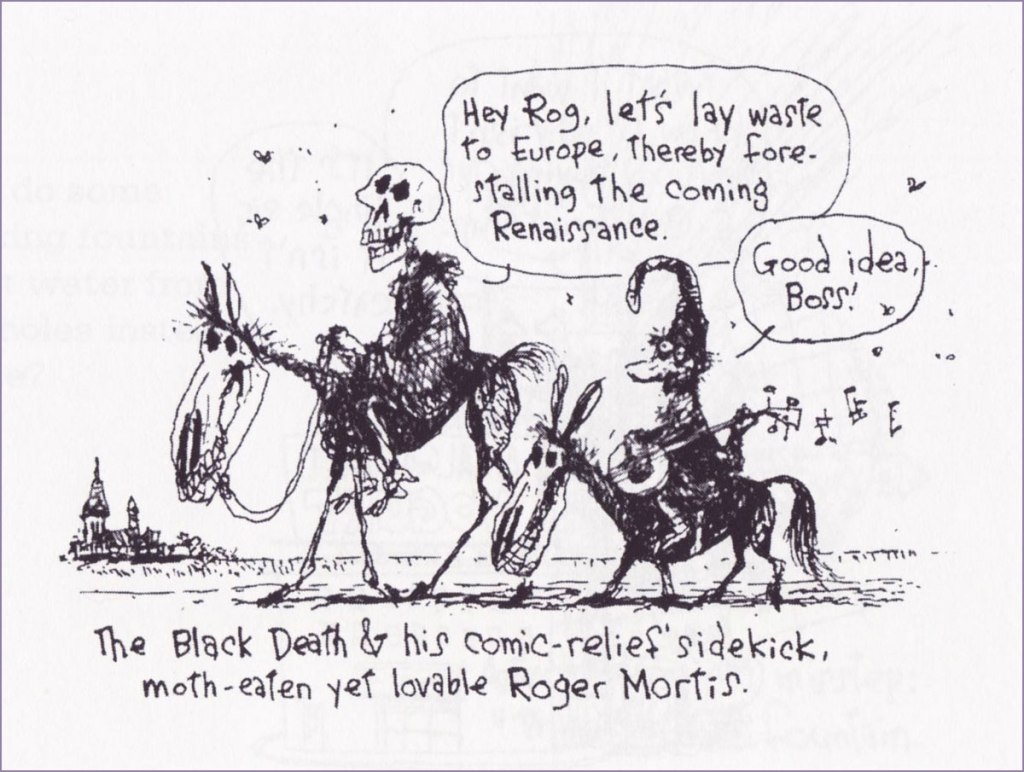 Hey Rog, let's lay waste
to Europe, thereby fore-
stalling the coming
Renaissance.
Good idea,
Boss!
The Black Death & his comic-relief sidekick,
moth-eaten yet lovable Roger Mortis.
do some
fountains
water from
holes